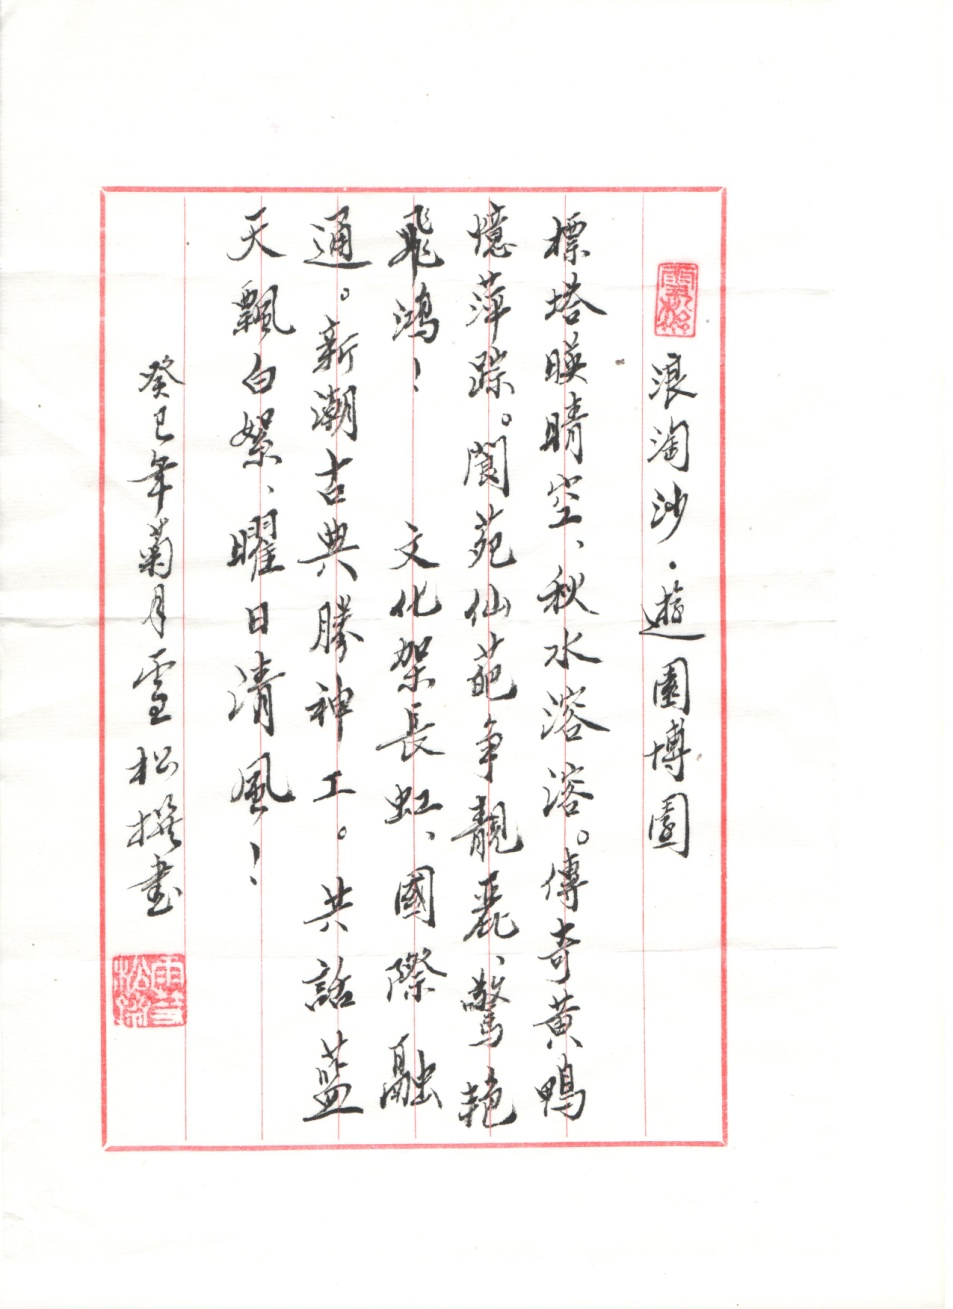 雪松
浪淘沙·遊園博園
標塔暎晴空、秋水溶溶。傳奇黃鴨
憶萍踪。閬苑仙葩争靚麗、驚艳
飛鴻！ 文化架長虹、國際融
通。新潮古典勝神工。共話藍
天飄白絮、曜日清風！
癸巳年菊月雪松撰書